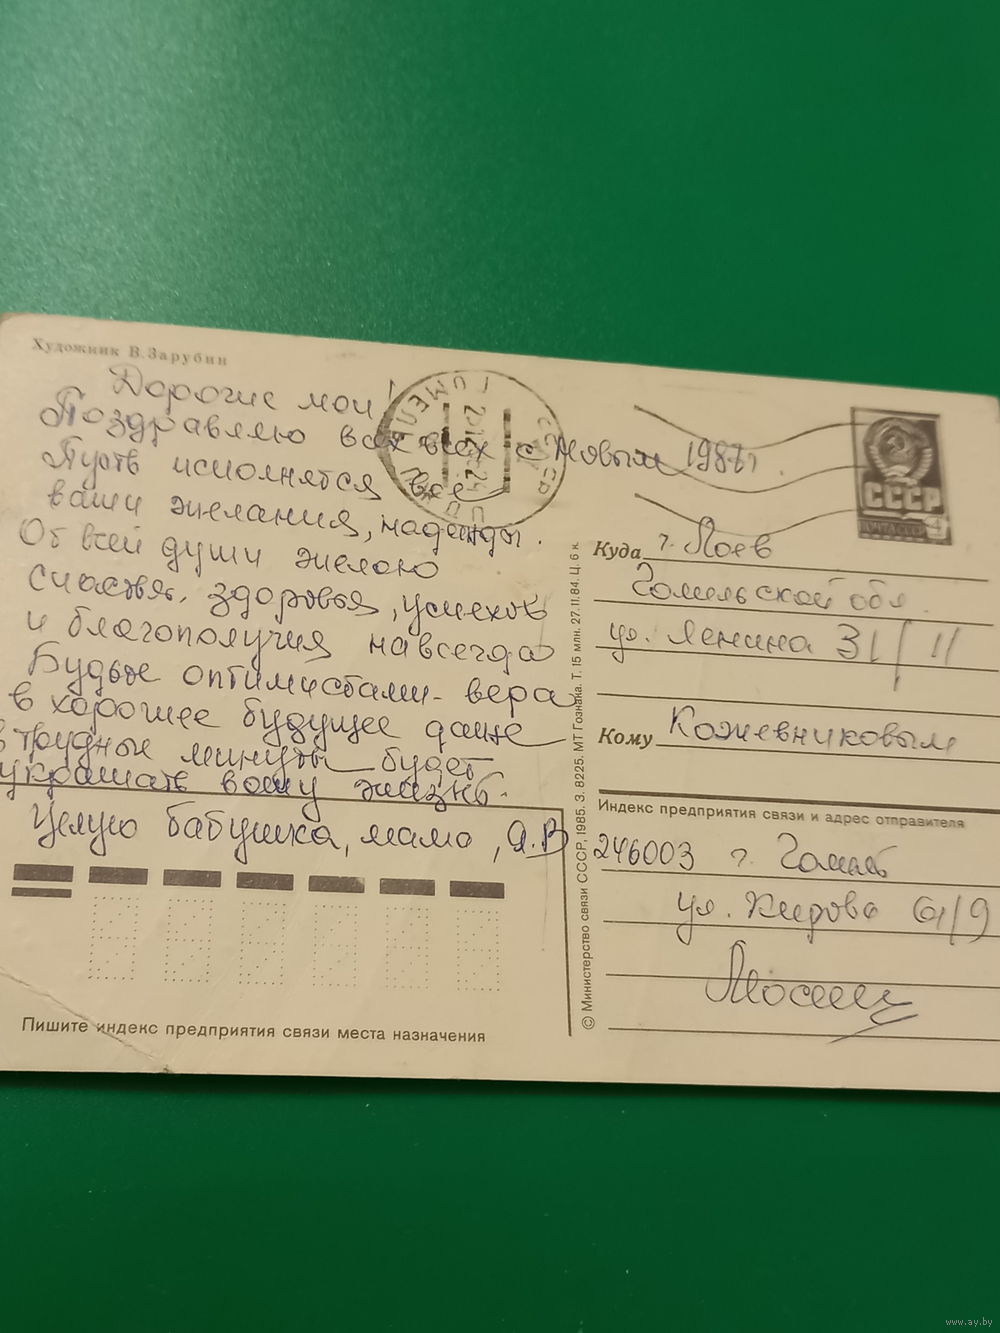 Художник В.Зарубин
Дорогие мои!
Поздравляю всех всех с Новым 1987г.
Пусть исполнятся все
ваши желания, надежды.
От всей души желаю
счастья, здоровья, успехов
и благополучия навсегда
Будьте оптимистами - вера
в хорошее будущее даже
в трудные минуты будет
украшать вашу жизнь.
Целую бабушка, мама, А.В
Пишите индекс предприятия связи места назначения
© Министерство связи СССР, 1985. З. 8225. МТ Гознака. Т. 15 млн. 27.11.84. Ц. 6 к.
СССР
ПОЧТА СССР
4
Куда г. Лоев
Гомельской обл.
ул. Ленина 31/11
Кому Кожевниковым
Индекс предприятия связи и адрес отправителя
246003 г. Гомель
ул. Кирова 61/9
www.ay.by